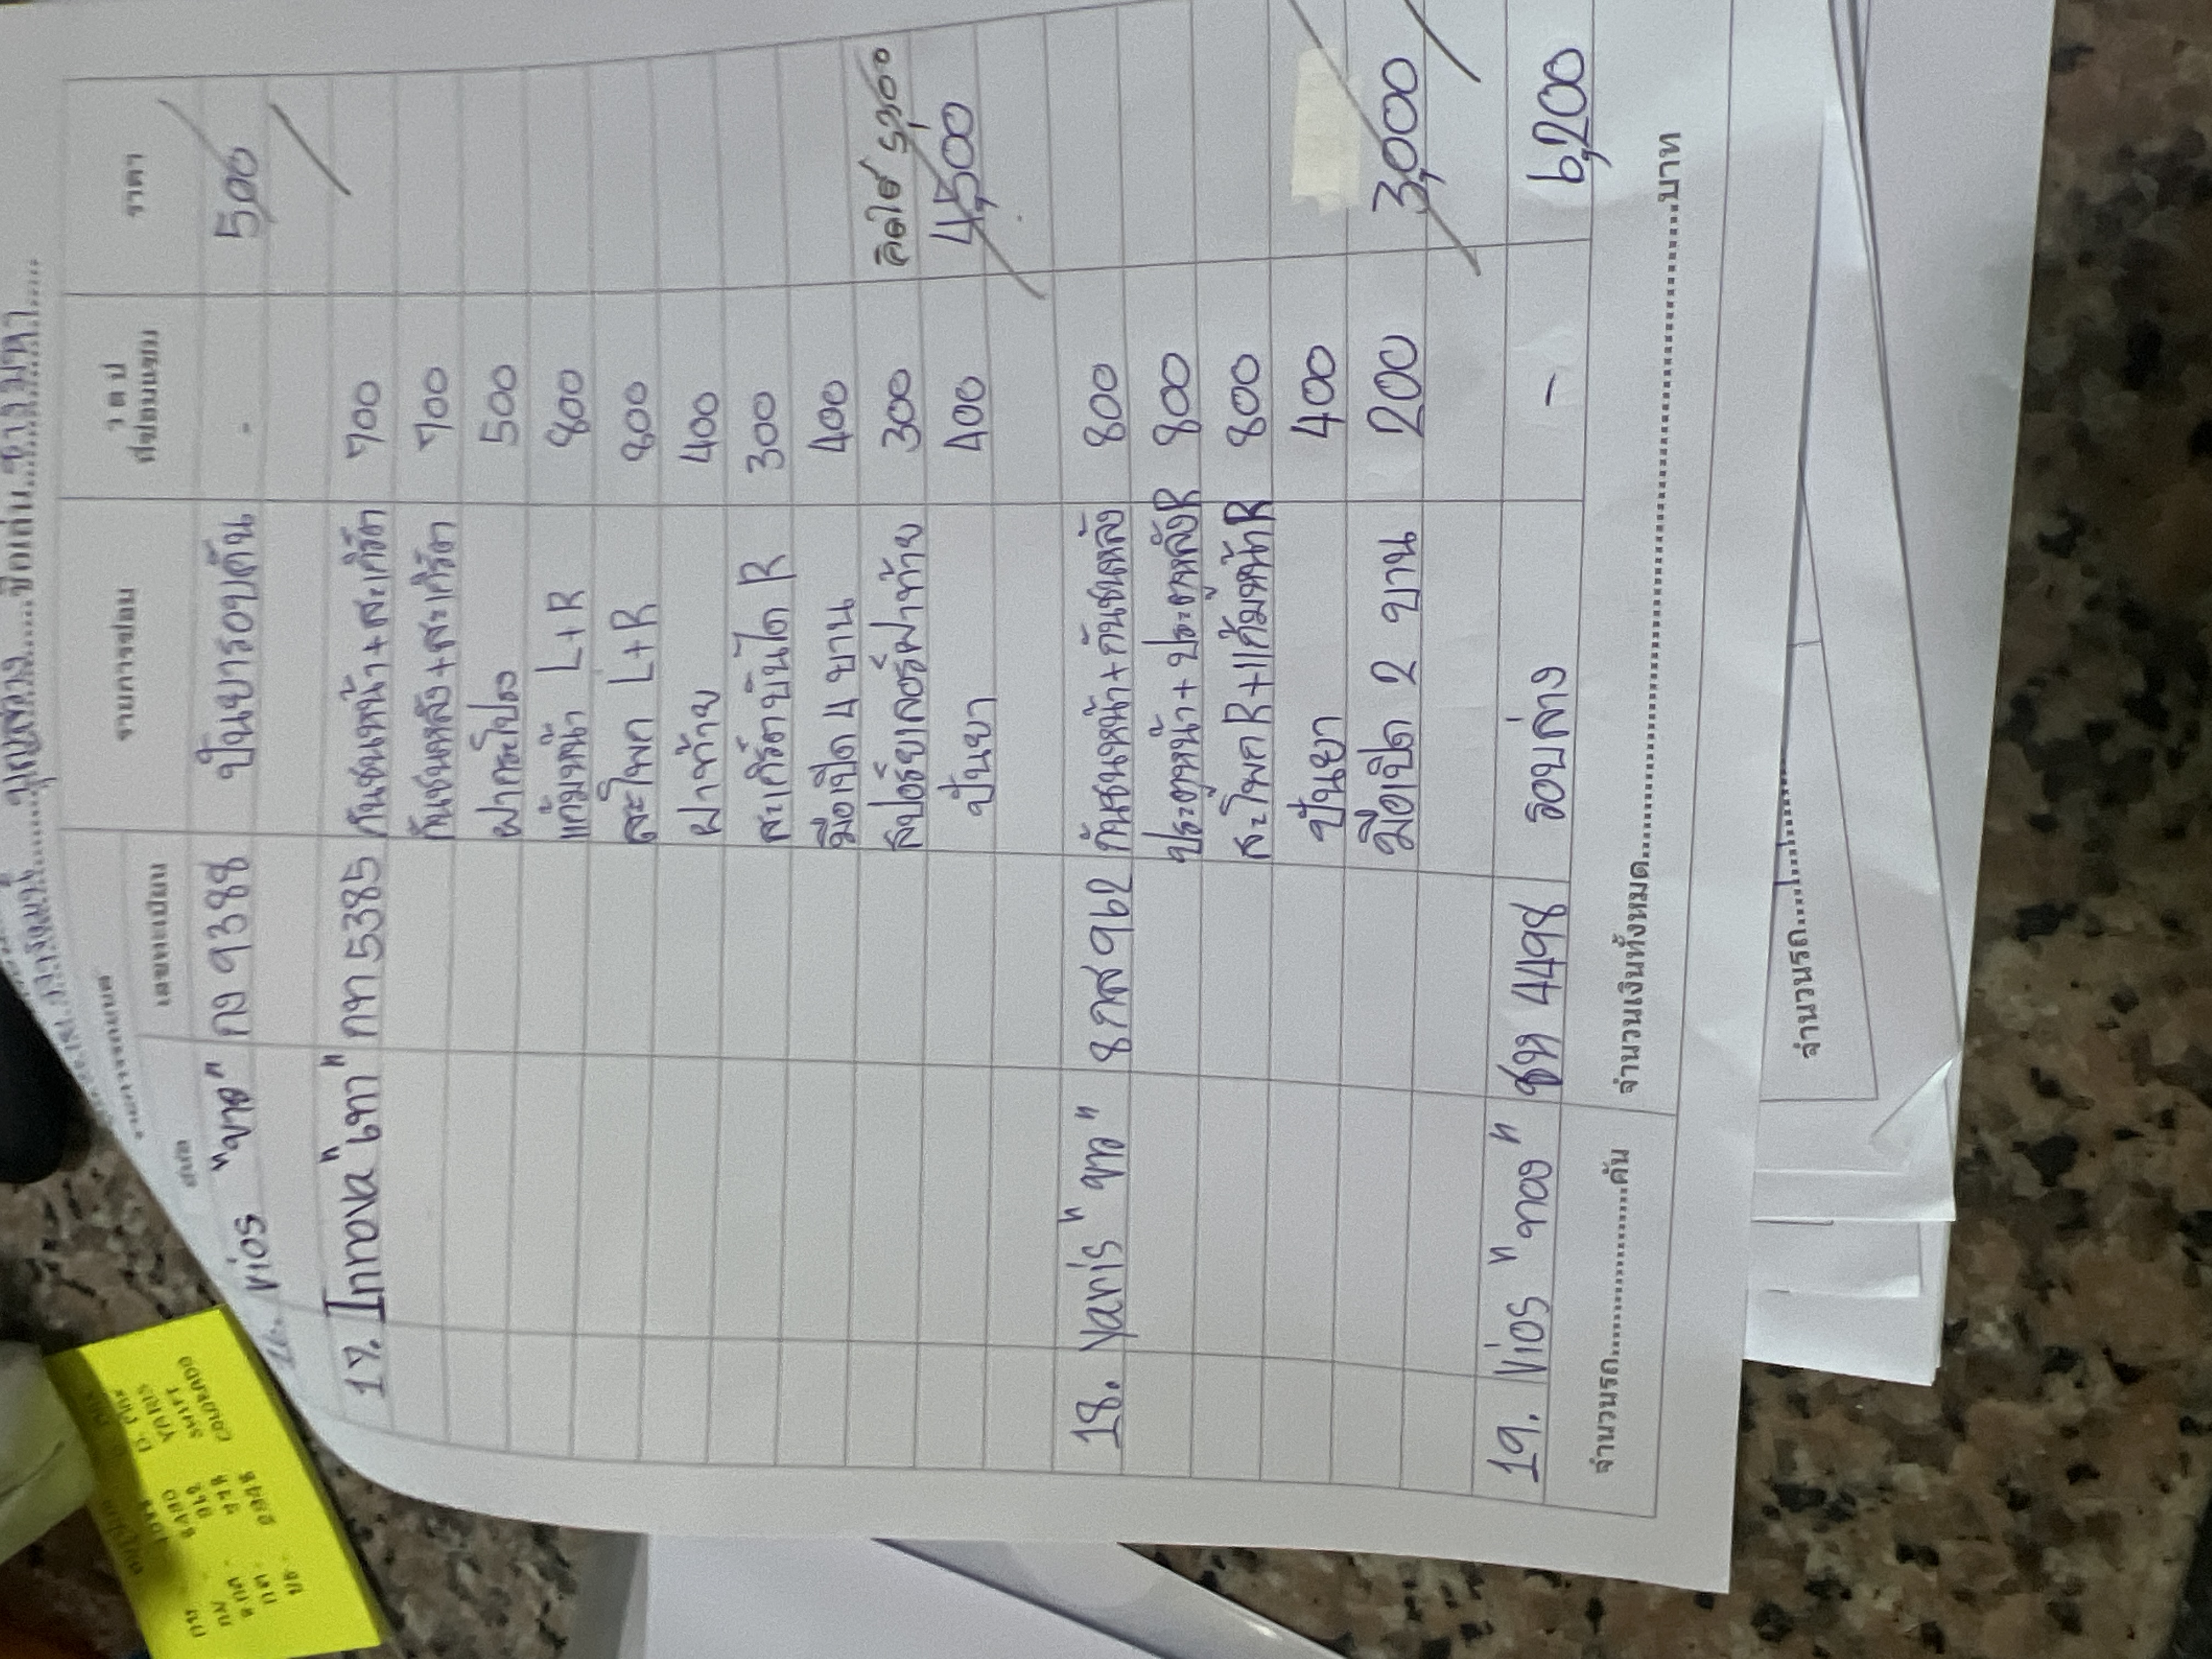 บุญสวาง.....ชื่อเล่น
รายการซ่อม
ราคา
เลขทะเบียน
16. Vios "ขาว" กง 9388 ปั้นยารอบคัน - 500
17. Innova "เทา" กท 5385 กันชนหน้า+สะเกิร์ต 700
กันชนหลัง+สะเกิร์ต 700
ฝากระโปรง 500
แก้มหน้า L+R 800
สะโพก L+R 800
ฝาท้าย 400
สะเกิร์ตบันได R 300
มือเปิด 4 บาน 400
สปอร์ยเลอร์ฝาท้าย 300 คิดได้ 5,300
ปั้นยา 400 4,500
18. Yaris "ขาว" 8กส 962 กันชนหน้า+กันชนหลัง 800
ประตูหน้า+ประตูหลัง R 800
สะโพก R+แก้มหน้า R 800
ปั้นยา 400
มือเปิด 2 บาน 200 3,000
19. Vios "ทอง" ชห 4498 รอบล่าง - 6,200
จำนวนรถ....................คัน จำนวนเงินทั้งหมด....................บาท
จำนวนรถ
YARIS
SWIFT
COLORADO